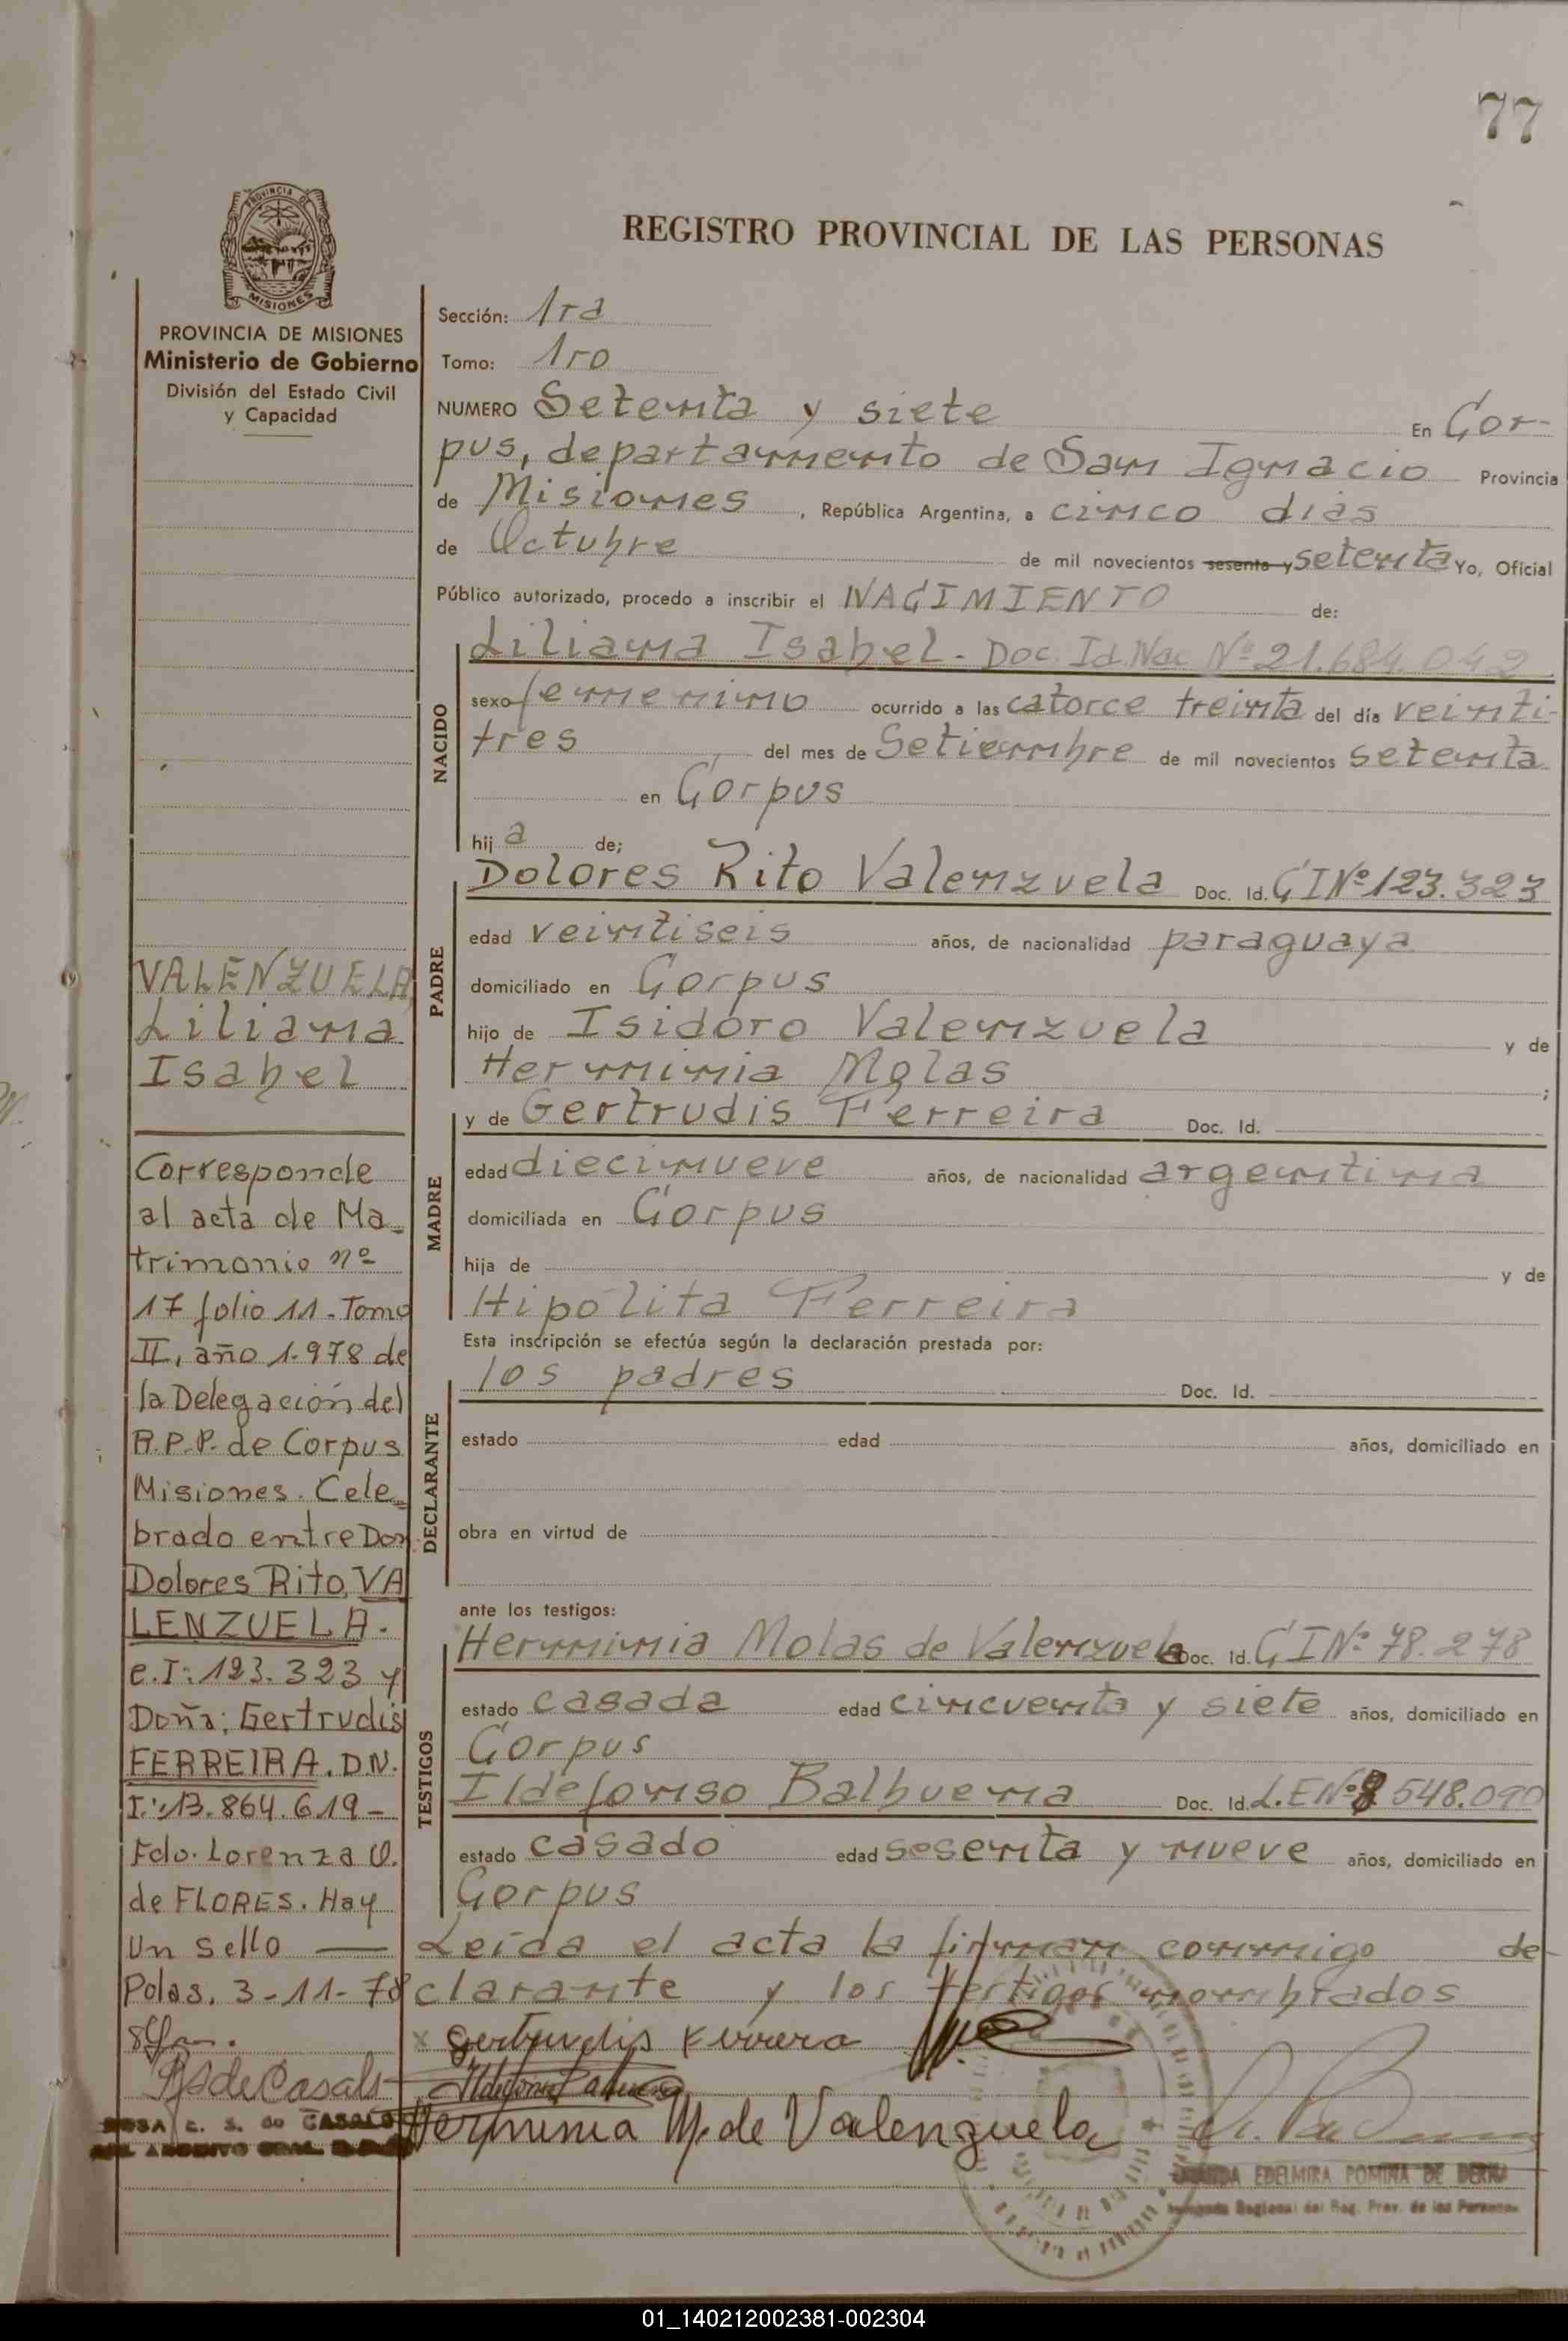 77
PROVINCIA DE
MISIONES
PROVINCIA DE MISIONES
Ministerio de Gobierno
División del Estado Civil
y Capacidad
REGISTRO PROVINCIAL DE LAS PERSONAS
Sección: 1ra
Tomo: 1ro
NUMERO Setenta y siete En Cor-
pus, departamento de San Ignacio Provincia
de Misiones, República Argentina, a cinco dias
de Octubre de mil novecientos sesenta y setenta Yo, Oficial
Público autorizado, procedo a inscribir el NACIMIENTO de:
NACIDO
Liliana Isabel - Doc. Id. Nac Nº 21.684.042
sexo femenino ocurrido a las catorce treinta del día veinti-
tres del mes de Setiembre de mil novecientos setenta
en Corpus
hij a de;
PADRE
Dolores Rito Valenzuela Doc. Id. CI Nº 123.323
edad veintiseis años, de nacionalidad paraguaya
domiciliado en Corpus
hijo de Isidoro Valenzuela y de
Herminia Molas ;
MADRE
y de Gertrudis Ferreira Doc. Id.
edad diecinueve años, de nacionalidad argentina
domiciliada en Corpus
hija de y de
Hipólita Ferreira
Esta inscripción se efectúa según la declaración prestada por:
DECLARANTE
los padres Doc. Id.
estado edad años, domiciliado en
obra en virtud de
ante los testigos:
TESTIGOS
Herminia Molas de Valenzuela Doc. Id. CI Nº 78.278
estado casada edad cincuenta y siete años, domiciliado en
Corpus
Ildefonso Balbuena Doc. Id. L.E Nº 8 548.090
estado casado edad sesenta y nueve años, domiciliado en
Corpus
Leída el acta la firman conmigo de-
clarante y los testigos nombrados
x Gertrudis Ferrera
Herminia M. de Valenzuela
EDELMIRA POMINA DE
Regional del Reg. Prov. de las Personas
VALENZUELA,
Liliana
Isabel
Corresponde
al acta de Ma-
trimonio nº
17 folio 11 - Tomo
II, año 1.978 de
la Delegación del
R.P.P. de Corpus
Misiones. Cele-
brado entre Don
Dolores Rito, VA
LENZUELA.
C.I: 123.323 y
Doña: Gertrudis
FERREIRA. D.N.
I.: 13.864.619 -
Fdo. Lorenza O.
de FLORES. Hay
Un sello —
Pdas. 3-11-78
ROSA E. S. de CASALS
01_140212002381-002304